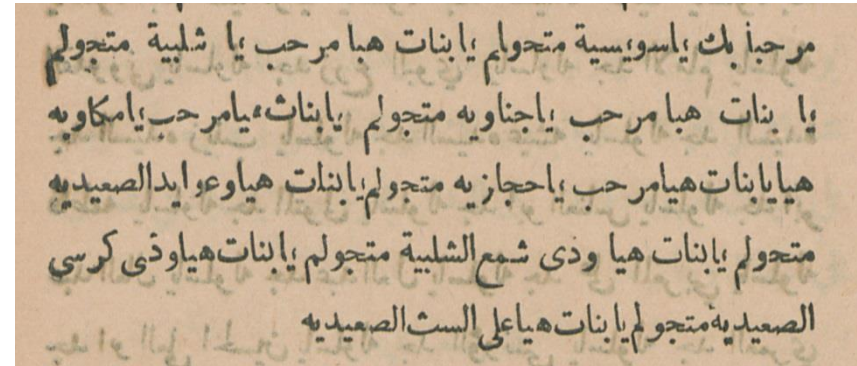 مرحباً بك ياسويسية متجولم يابنات هبا مرحب يا شلبية متجولم
يا بنات هبا مرحب ياجناويه متجولم يابناث هيامرحب يامكاويه
هيايابنات هيامرحب ياحجازيه متجولم يابنات هياوعوايدالصعيديه
متجولم يابنات هيا ودى شمع الشلبية متجولم يابنات هياوذى كرسي
الصعيدية متجولم يابنات هياعلى الست الصعيديه